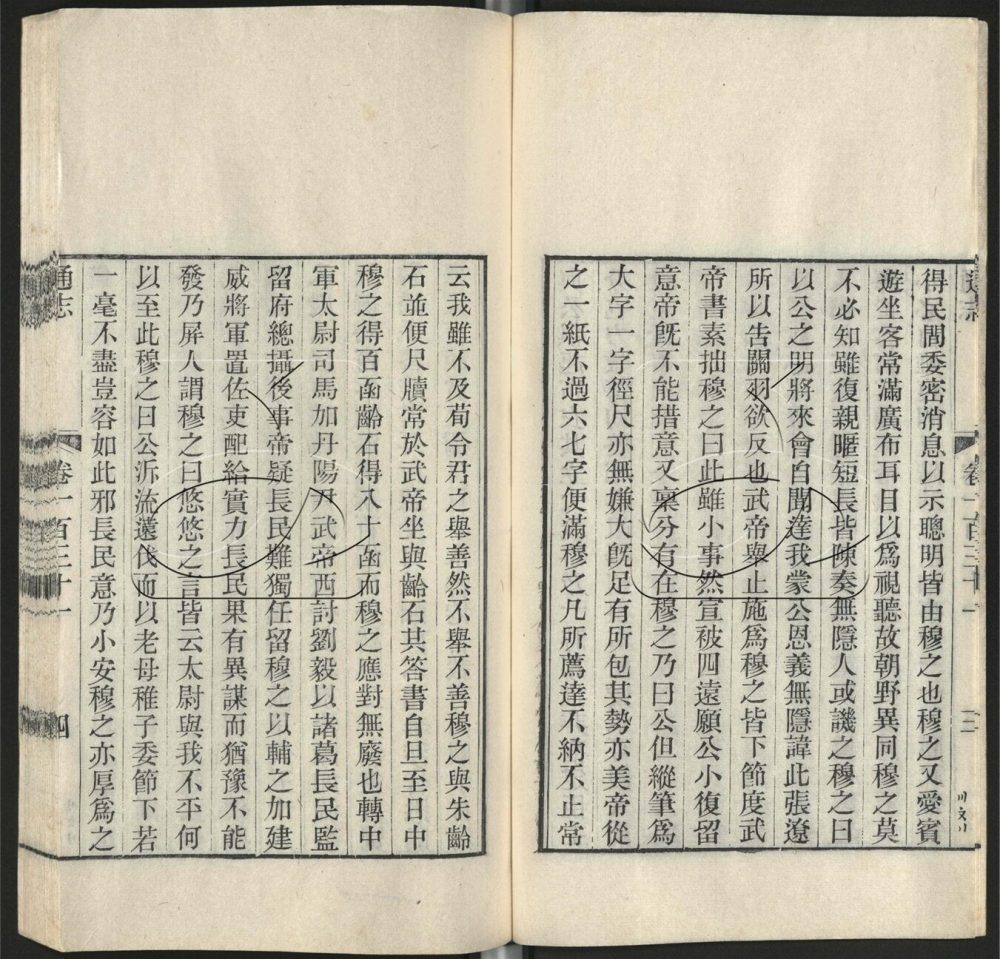 通志
卷一百三十一
三
得民間委密消息以示聰明皆由穆之也穆之又愛賓
遊坐客常滿廣布耳目以爲視聽故朝野異同穆之莫
不必知雖復親暱短長皆陳奏無隱人或譏之穆之曰
以公之明將來會自聞達我蒙公恩義無隱諱此張遼
所以告關羽欲反也武帝舉止施爲穆之皆下節度武
帝書素拙穆之曰此雖小事然宣被四遠願公小復留
意帝旣不能措意又稟分有在穆之乃曰公但縱筆爲
大字一字徑尺亦無嫌大旣足有所包其勢亦美帝從
之一紙不過六七字便滿穆之凡所薦達不納不止常
云我雖不及荀令君之舉善然不舉不善穆之與朱齡
石並便尺牘常於武帝坐與齡石其答書自旦至日中
穆之得百函齡石得八十函而穆之應對無廢也轉中
軍太尉司馬加丹陽尹武帝西討劉毅以諸葛長民監
留府總攝後事帝疑長民難獨任留穆之以輔之加建
威將軍置佐吏配給實力長民果有異謀而猶豫不能
發乃屏人謂穆之曰悠悠之言皆云太尉與我不平何
以至此穆之曰公泝流遠伐而以老母稚子委節下若
一毫不盡豈容如此邪長民意乃小安穆之亦厚爲之
通志
卷一百三十一
四